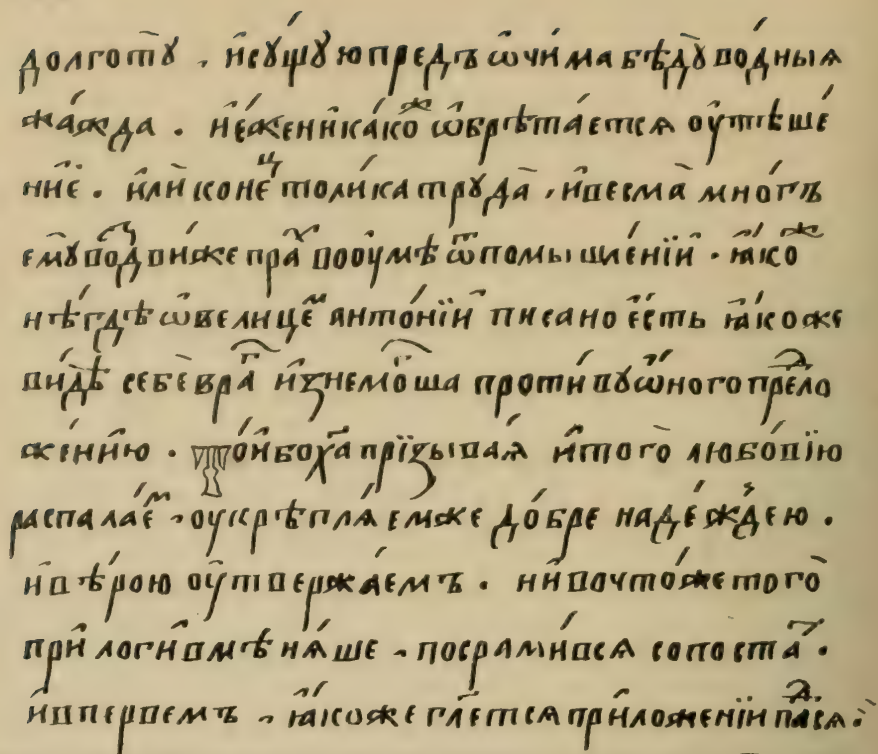 долготꙋ̀ , и҆сꙋ́щꙋю предъ ѡ҆чи́ма бѣдꙋ̀ во́дныѧ
жа́жда . и҆ е҆́же ника́коⷤ ѡ҆брѣта́етсѧ оу҆тѣше́
нїе . и҆лѝ конеⷰ҇ толи́ка трꙋда̀ , и҆ весма̀ мно́гъ
емꙋ̀ по́дⷡ҇виже враⷢ҇ во оу҆мѣ̀ ѿ помышле́нїй . ꙗ҆́коⷤ
нѣ́гдѣ ѡ҆ вели́цеⷨ антѡ́нїи писано є҆́сть ꙗ҆́коже
ви́дѣ себѐ враⷢ҇ и҆знемо́гша проти́вꙋ ѡ҆́ного преⷣло
же́нїю . то́й бо хⷭ҇а̀ призыва́ѧ и҆ того̀ любо́вїю
распала́еⷨ , оу҆крѣплѧ́емже до́брѣ наде́ждею .
и҆ вѣ́рою оу҆твержа́емъ . ни во что́же того̀
прило́ги въ мѣ̑ на́ше , посрами́всѧ сопоста́ⷮ .
и҆ в пе́рвемъ , ꙗ҆́коже гл҃етсѧ приложе́нїи паⷣсѧ :